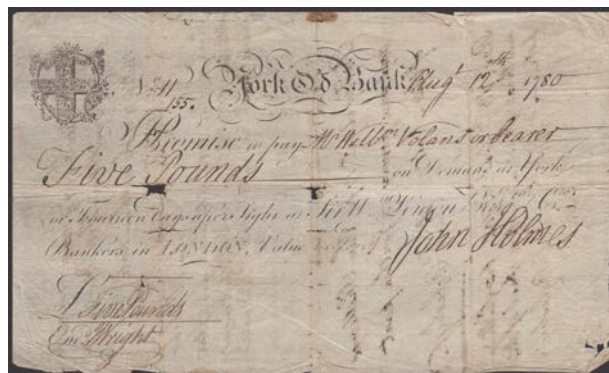 No. 11
155.
York Old Bank Augt 12th 1780
I Promise to pay Mr Willm Volans or bearer
Five Pounds on Demand at York
or Fourteen Days after Sight at Sir
Bankers in LONDON, Value received
John Holmes
£ Five Pounds
Wright